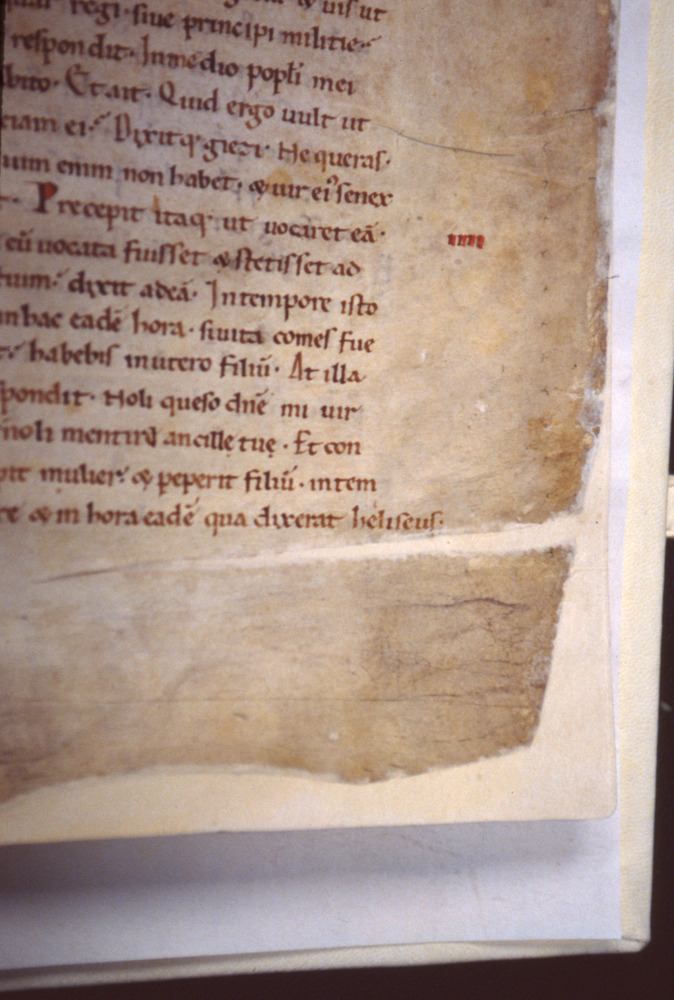 & uis ut
regi· siue principi militie·
respondit· In medio popli mei
bito· Et ait· Quid ergo uult ut
ciam ei· Dixitq· giezi· Ne queras·
ium enim non habet· & uir ei' senex
Precepit itaq· ut uocaret eā·
cū uocata fuisset & stetisset ad
tium· dixit ad eā· In tempore isto
in hac eadē hora· si uita comes fue
t· habebis in utero filiū· At illa
spondit· Noli queso dn̄e mi uir
noli mentiri ancillę tuę· Et con
pit mulier· & peperit filiū· in tem
re & in hora eadē qua dixerat heliseus·
IIII